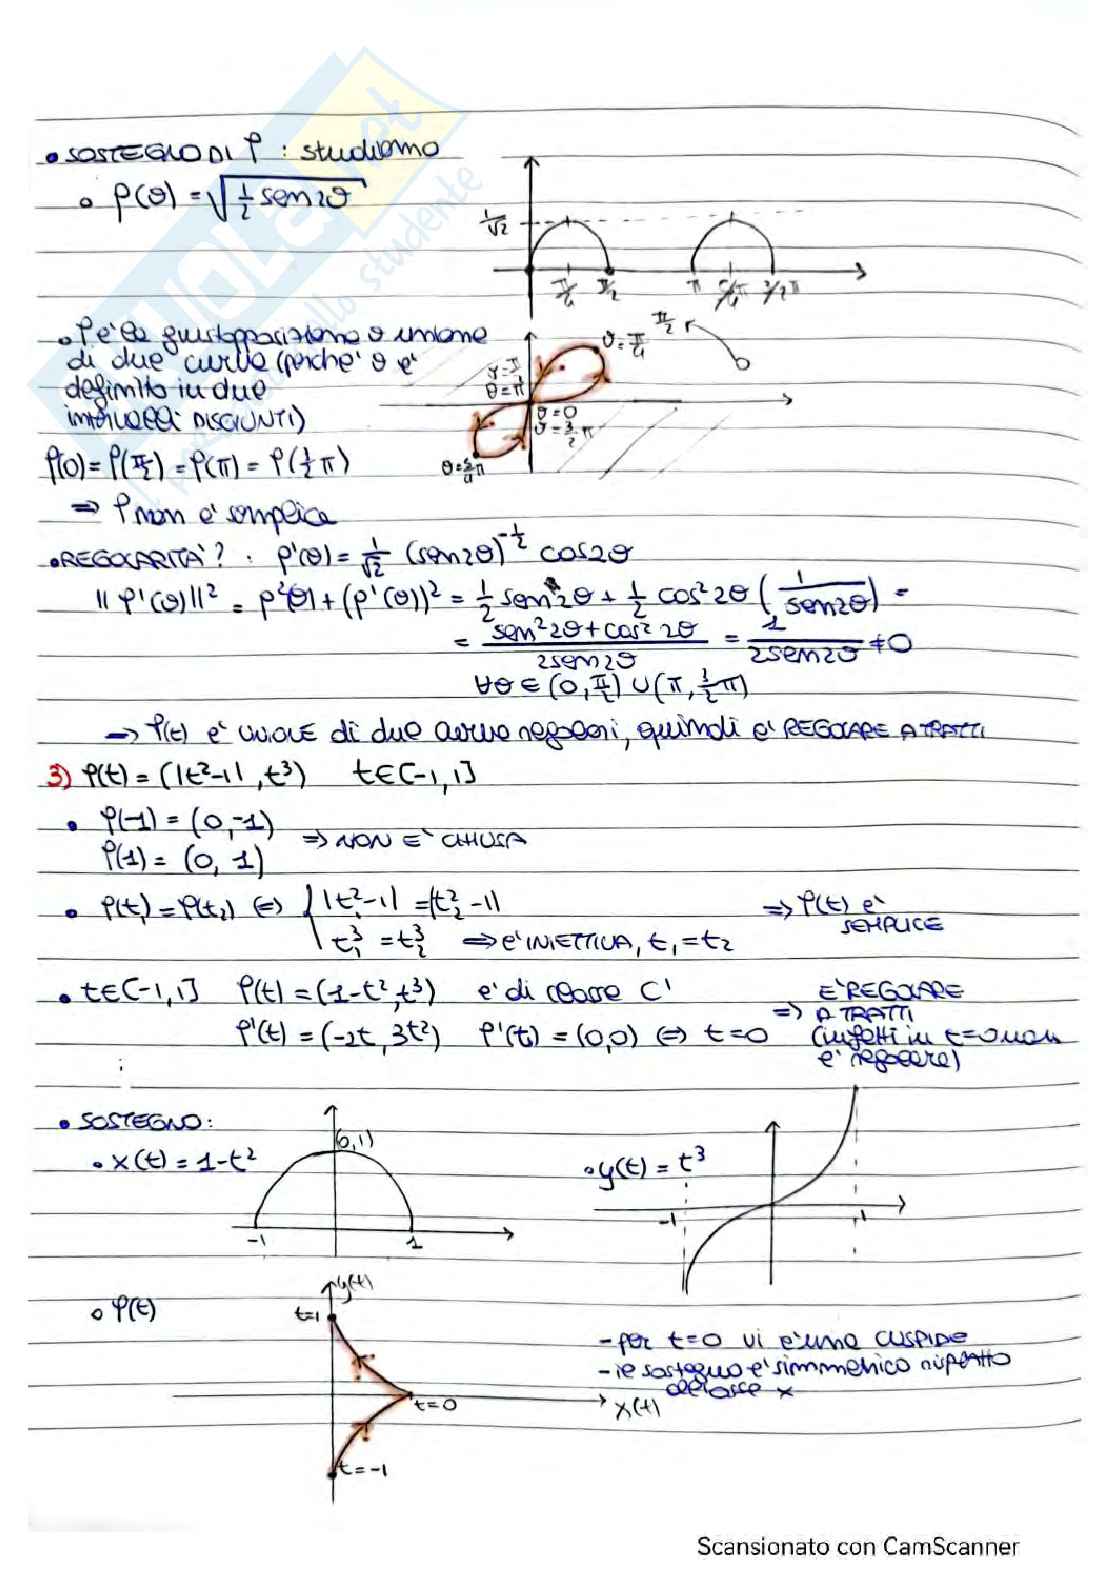 • SOSTEGNO DI φ : studiamo
• ρ(θ) = √(1/2 sen2θ)
1/√2
π/4 π/2 π 5/4π 3/2π
• φ è la giustapposizione o unione
di due curve (perché θ è
definito in due
intervalli DISGIUNTI)
θ=π/4
π/2
θ=π/2
θ=π
θ=0
θ=3/2π
θ=5/4π
φ(0) = φ(π/2) = φ(π) = φ(3/2π)
⇒ φ non è semplice
• REGOLARITÀ? : ρ'(θ) = 1/√2 (sen2θ)^-1/2 cos2θ
||φ'(θ)||² = ρ²(θ) + (ρ'(θ))² = 1/2 sen2θ + 1/2 cos²2θ (1/sen2θ) =
= (sen²2θ + cos²2θ)/(2sen2θ) = 1/(2sen2θ) ≠ 0
∀θ ∈ (0, π/2) ∪ (π, 3/2π)
→ φ(t) è unione di due curve regolari, quindi è REGOLARE A TRATTI
3) φ(t) = (|t²-1|, t³) t∈[-1,1]
• φ(-1) = (0,-1)
φ(1) = (0, 1)
⇒ NON È CHIUSA
• φ(t₁) = φ(t₂) ⇔ { |t₁²-1| = |t₂²-1|
t₁³ = t₂³ ⇒ È INIETTIVA, t₁ = t₂
⇒ φ(t) è
SEMPLICE
• t∈[-1,1] φ(t) = (1-t², t³) è di classe C¹
φ'(t) = (-2t, 3t²) φ'(t) = (0,0) ⇔ t=0
È REGOLARE
⇒ A TRATTI
(infatti in t=0 non
è regolare)
• SOSTEGNO:
• x(t) = 1-t²
(0,1)
-1 1
• y(t) = t³
-1 1
• φ(t)
y(t)
t=1
t=0
x(t)
t=-1
- per t=0 vi è una CUSPIDE
- il sostegno è simmetrico rispetto
all'asse x
Scansionato con CamScanner